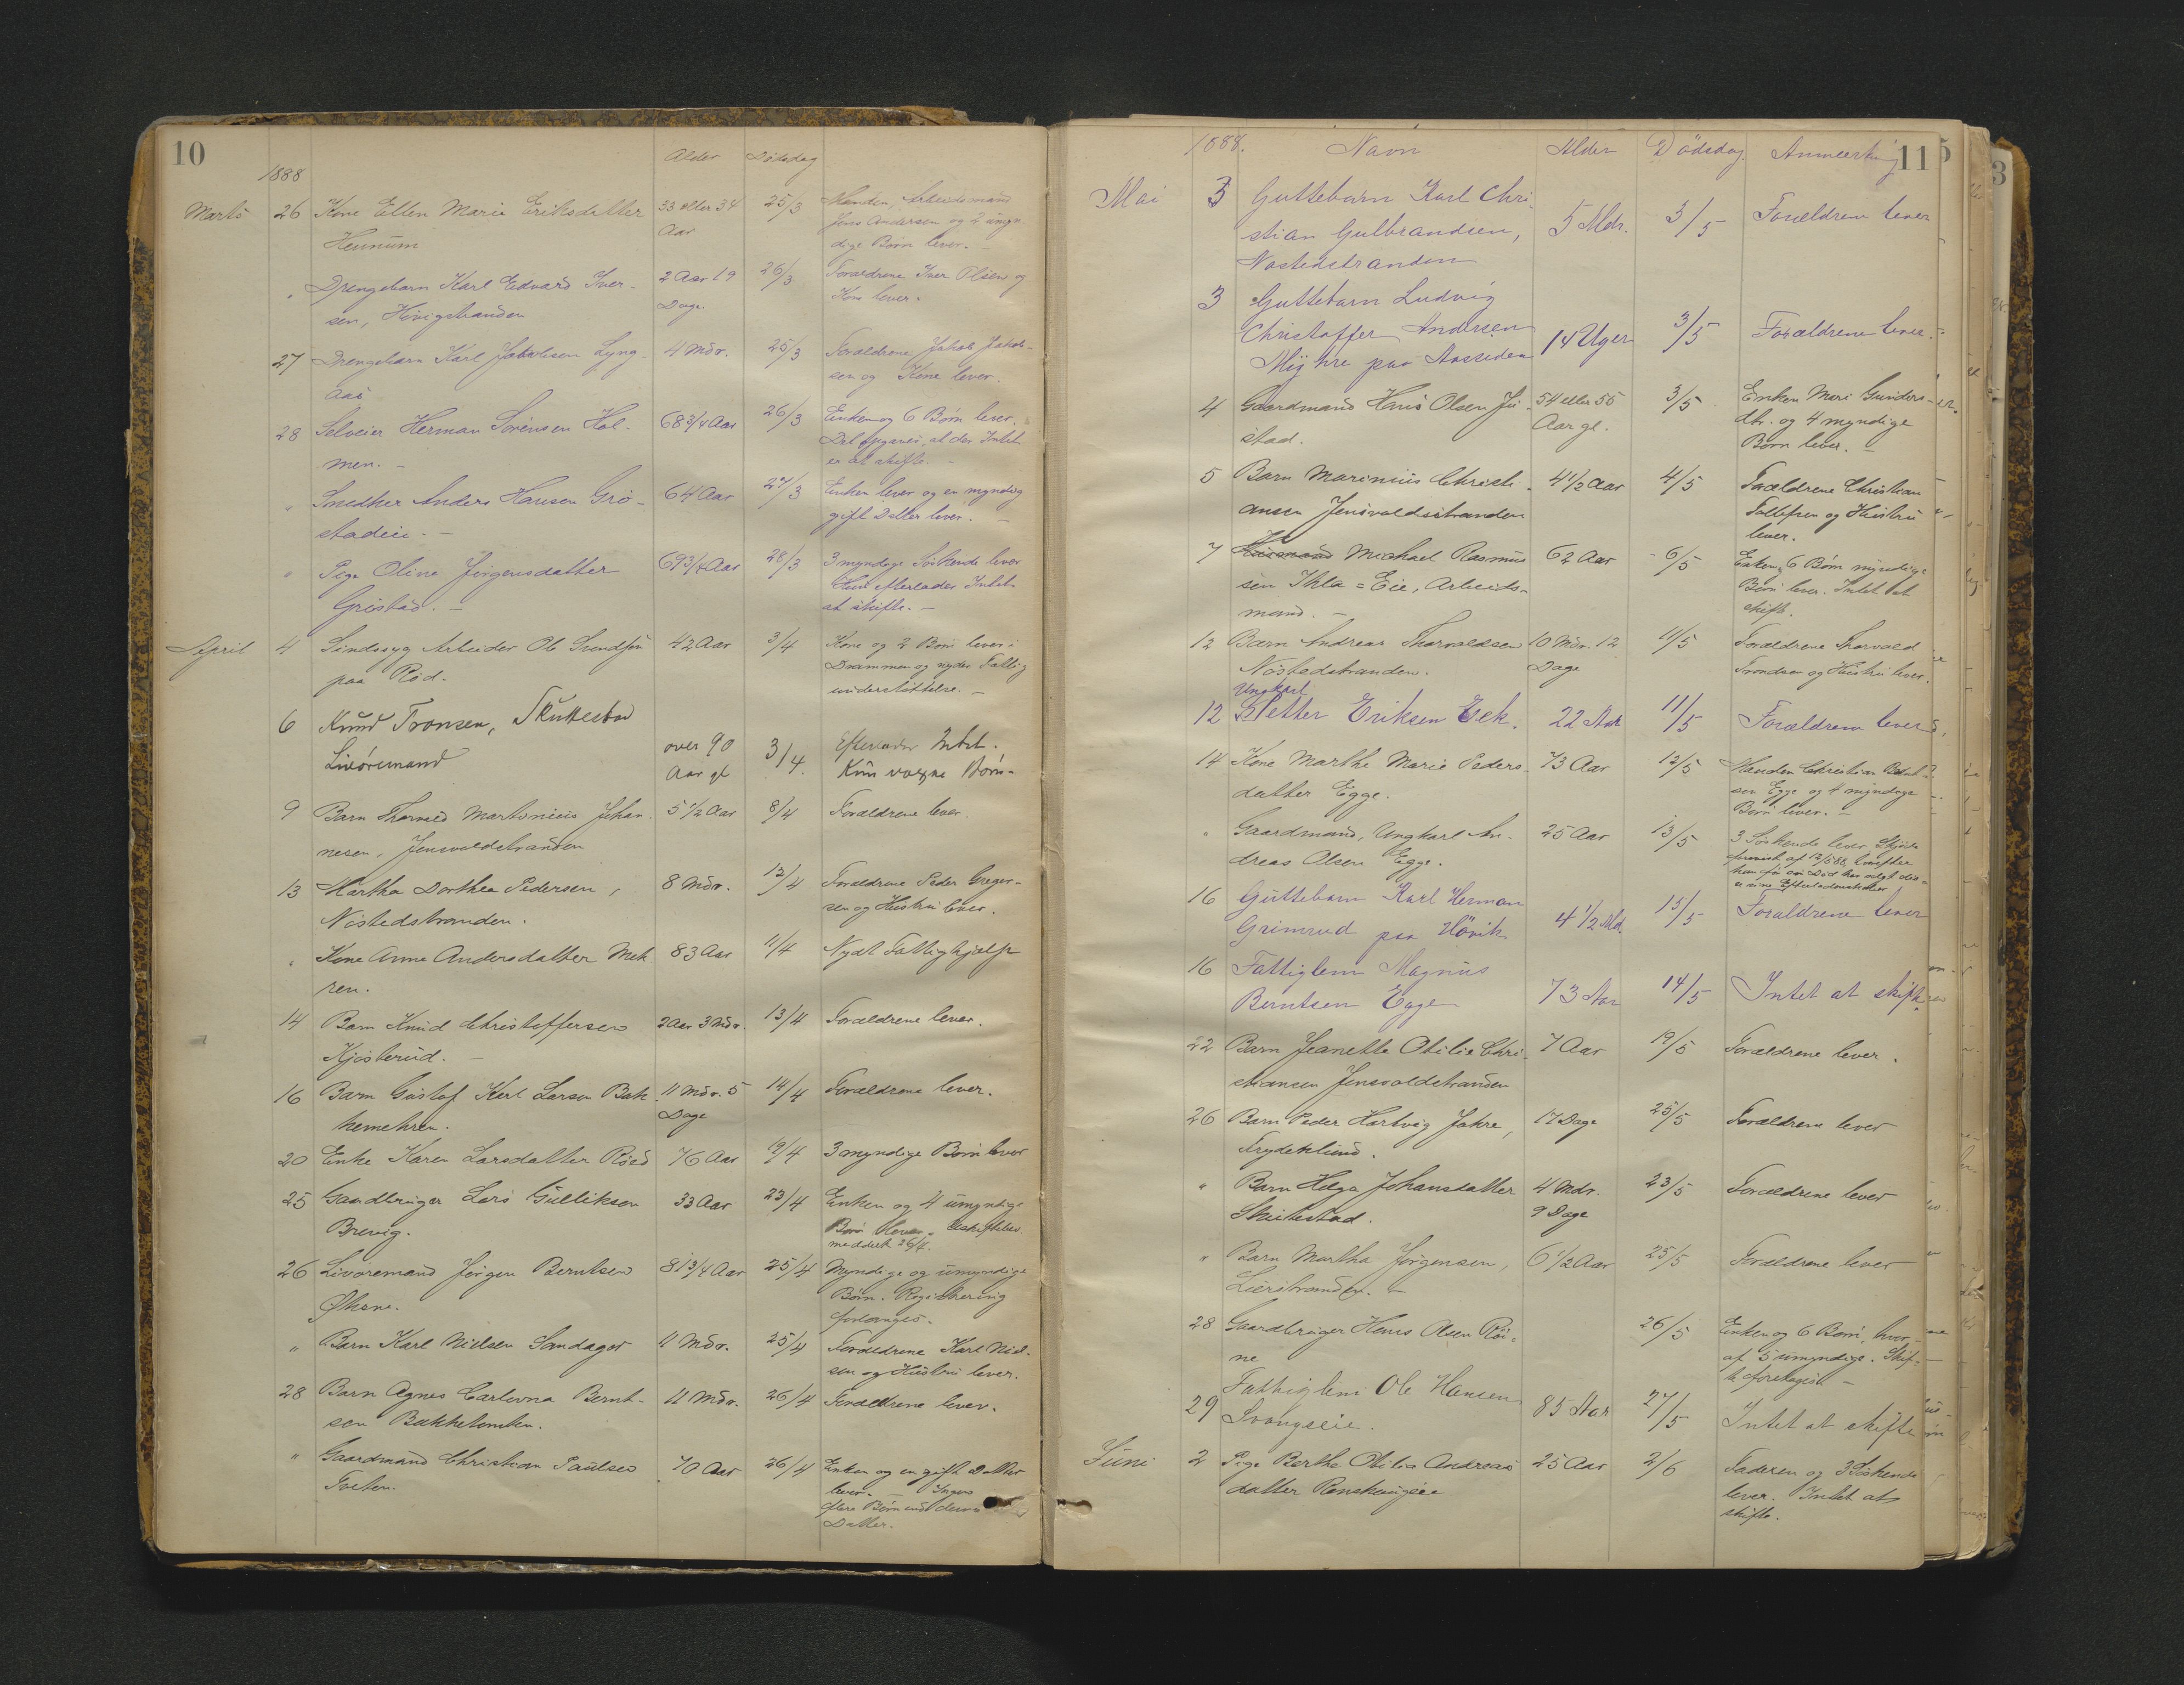 10
Alder Dødsdag
1888
Marts 26 Kone Ellen Marie Eriksdatter 33 eller 34 25/3 Manden, Arbeidsmand
Hennum Aar Jens Andersen og 2 umyn-
dige Børn lever. -
" Drengebarn Karl Edvard Iver- 2 Aar 19 26/3 Forældrene Iver Olsen og
sen, Høvigstranden Dage. Kone lever.
27 Drengebarn Karl Jakobsen Lyng- 4 Mdr. 25/3 Forældrene Jakob Jakob-
aas sen og Kone lever.
28 Selveier Herman Sørensen Hol- 68 3/4 Aar 26/3 Enken og 6 Børn lever.
men. - Det opgaves, at der Intet
er at skifte. -
" Snedker Anders Hansen Grø- 64 Aar 27/3 Enken lever og en myndig
stadeie. - gift Datter lever. -
" Pige Oline Jørgensdatter 69 3/4 Aar 28/3 3 myndige Søskende lever
Gristad. - Hun efterlader Intet
at skifte. -
April 4 Sindssyg Arbeider Ole Svendsen 42 Aar 3/4 Kone og 2 Børn lever i
paa Rød. Drammen og nyder Fattig
understøttelse. -
6 Knud Tronsen, Skuttestad
Livøremand over 90 3/4. Efterlader Intet.
Aar gl Kun voxne Børn.
9 Barn Thorvald Martinius Johan- 5 1/2 Aar 8/4 Forældrene lever.
nesen, Jensvoldstranden
13 Martha Dorthea Pedersen, 8 Mdr. 12/4 Forældrene Peder Greger-
Nøstedstranden. sen og Hustru lever.
" Kone Anne Andersdatter Meh 83 Aar 11/4 Nydt Fattighjælp
ren.
14 Barn Knud Christoffersen 2 Aar 3 Mdr. 13/4 Forældrene lever.
Kjøsterud. -
16 Barn Gustaf Karl Larsen Bak- 11 Mdr. 5 14/4 Forældrene lever.
kemehren. Dage
20 Enke Karen Larsdatter Røed 76 Aar 19/4 3 myndige Børn lever
25 Gaardbruger Lars Gulliksen 33 Aar 23/4 Enken og 4 umyndige
Brevig. Børn lever. Uskiftebev.
meddelt 26/4.
26 Livøremand Jørgen Berntsen 81 3/4 Aar 25/4 Myndige og umyndige
Øksne. Børn. Registrering
forlanges.
" Barn Karl Nielsen Sandager 11 Mdr. 25/4 Forældrene Karl Niel-
sen og Hustru lever.
28 Barn Agnes Carlovna Bernt- 11 Mdr. 26/4 Forældrene lever.
sen Bakketomten.
" Gaardmand Christian Paulsen 70 Aar 26/4 Enken og en gift Datter
Tveten. lever. - Ingen
flere Børn end denne
Datter.
1888. Navn Alder Dødsdag. Anmerkning 11
Mai 3 Guttebarn Karl Chri-
stian Gulbrandsen, 5 Mdr. 3/5 Forældrene lever
Nøstedstranden
3 Guttebarn Ludvig
Christoffer Andersen 14 Uger 3/5 Forældrene lever.
Myhre paa Aasseden
4 Gaardmand Hans Olsen Ju- 54 eller 55 3/5 Enken Mari Gunders-
stad. Aar gl. dtr. og 4 myndige
Børn lever. -
5 Barn Marinius Christi- 4 1/2 Aar 4/5 Forældrene Christian
ansen Jensvoldsstranden Tollefsen og Hustru
lever.
7 Michael Rasmus 62 Aar 6/5 Enken, 6 Børn myndige
sen Ihle=Eie, Arbeids- Børn lever. Intet at
mand. - skifte.
12 Barn Andreas Thorvaldsen 10 Mdr. 12 11/5 Forældrene Thorvald
Nøstedstranden. Dage Trondsen og Hustru lever.
Ungkarl
12 Petter Eriksen Eek. 22 Aar 11/5 Forældrene lever
14 Kone Marthe Marie Peders- 73 Aar 12/5 Manden Christian
datter Egge. sen Egge og 4 myndige
Børn lever. -
" Gaardmand, Ungkarl An- 25 Aar 13/5 3 Søskende lever. Skjøde
dreas Olsen Egge. forevist af 12/5 88, hvorefter
han før sin Død har solgt
sine Efterladenskaber
16 Guttebarn Karl Herman
Grimsrud paa Høvik 4 1/2 Md. 15/5 Forældrene lever
16 Fattiglem Magnus
Berntsen Egge 73 Aar 14/5 Intet at skifte.
22 Barn Jeanette Otilie Chri- 7 Aar 19/5 Forældrene lever.
stiansen Jensvoldstranden
26 Barn Peder Hartvig Jahre, 17 Dage 25/5 Forældrene lever
Frydenlund.
" Barn Helga Johansdatter 4 Mdr. 23/5 Forældrene lever
Skuttestad. 9 Dage
" Barn Martha Jørgensen, 6 1/2 Aar 25/5 Forældrene lever
Lierstranden. -
28 Gaardbruger Hans Olsen Røi- 26/5 Enken og 6 Børn, hvor-
ne af 5 umyndige. Skif-
te foretages -
29 Fattiglem Ole Hansen
Svangseie. 85 Aar 27/5 Intet at skifte
Juni 2 Pige Berthe Otilie Andreas 25 Aar 2/6 Faderen og 3 Søskende
datter Renskaugeie lever. Intet at
skifte.